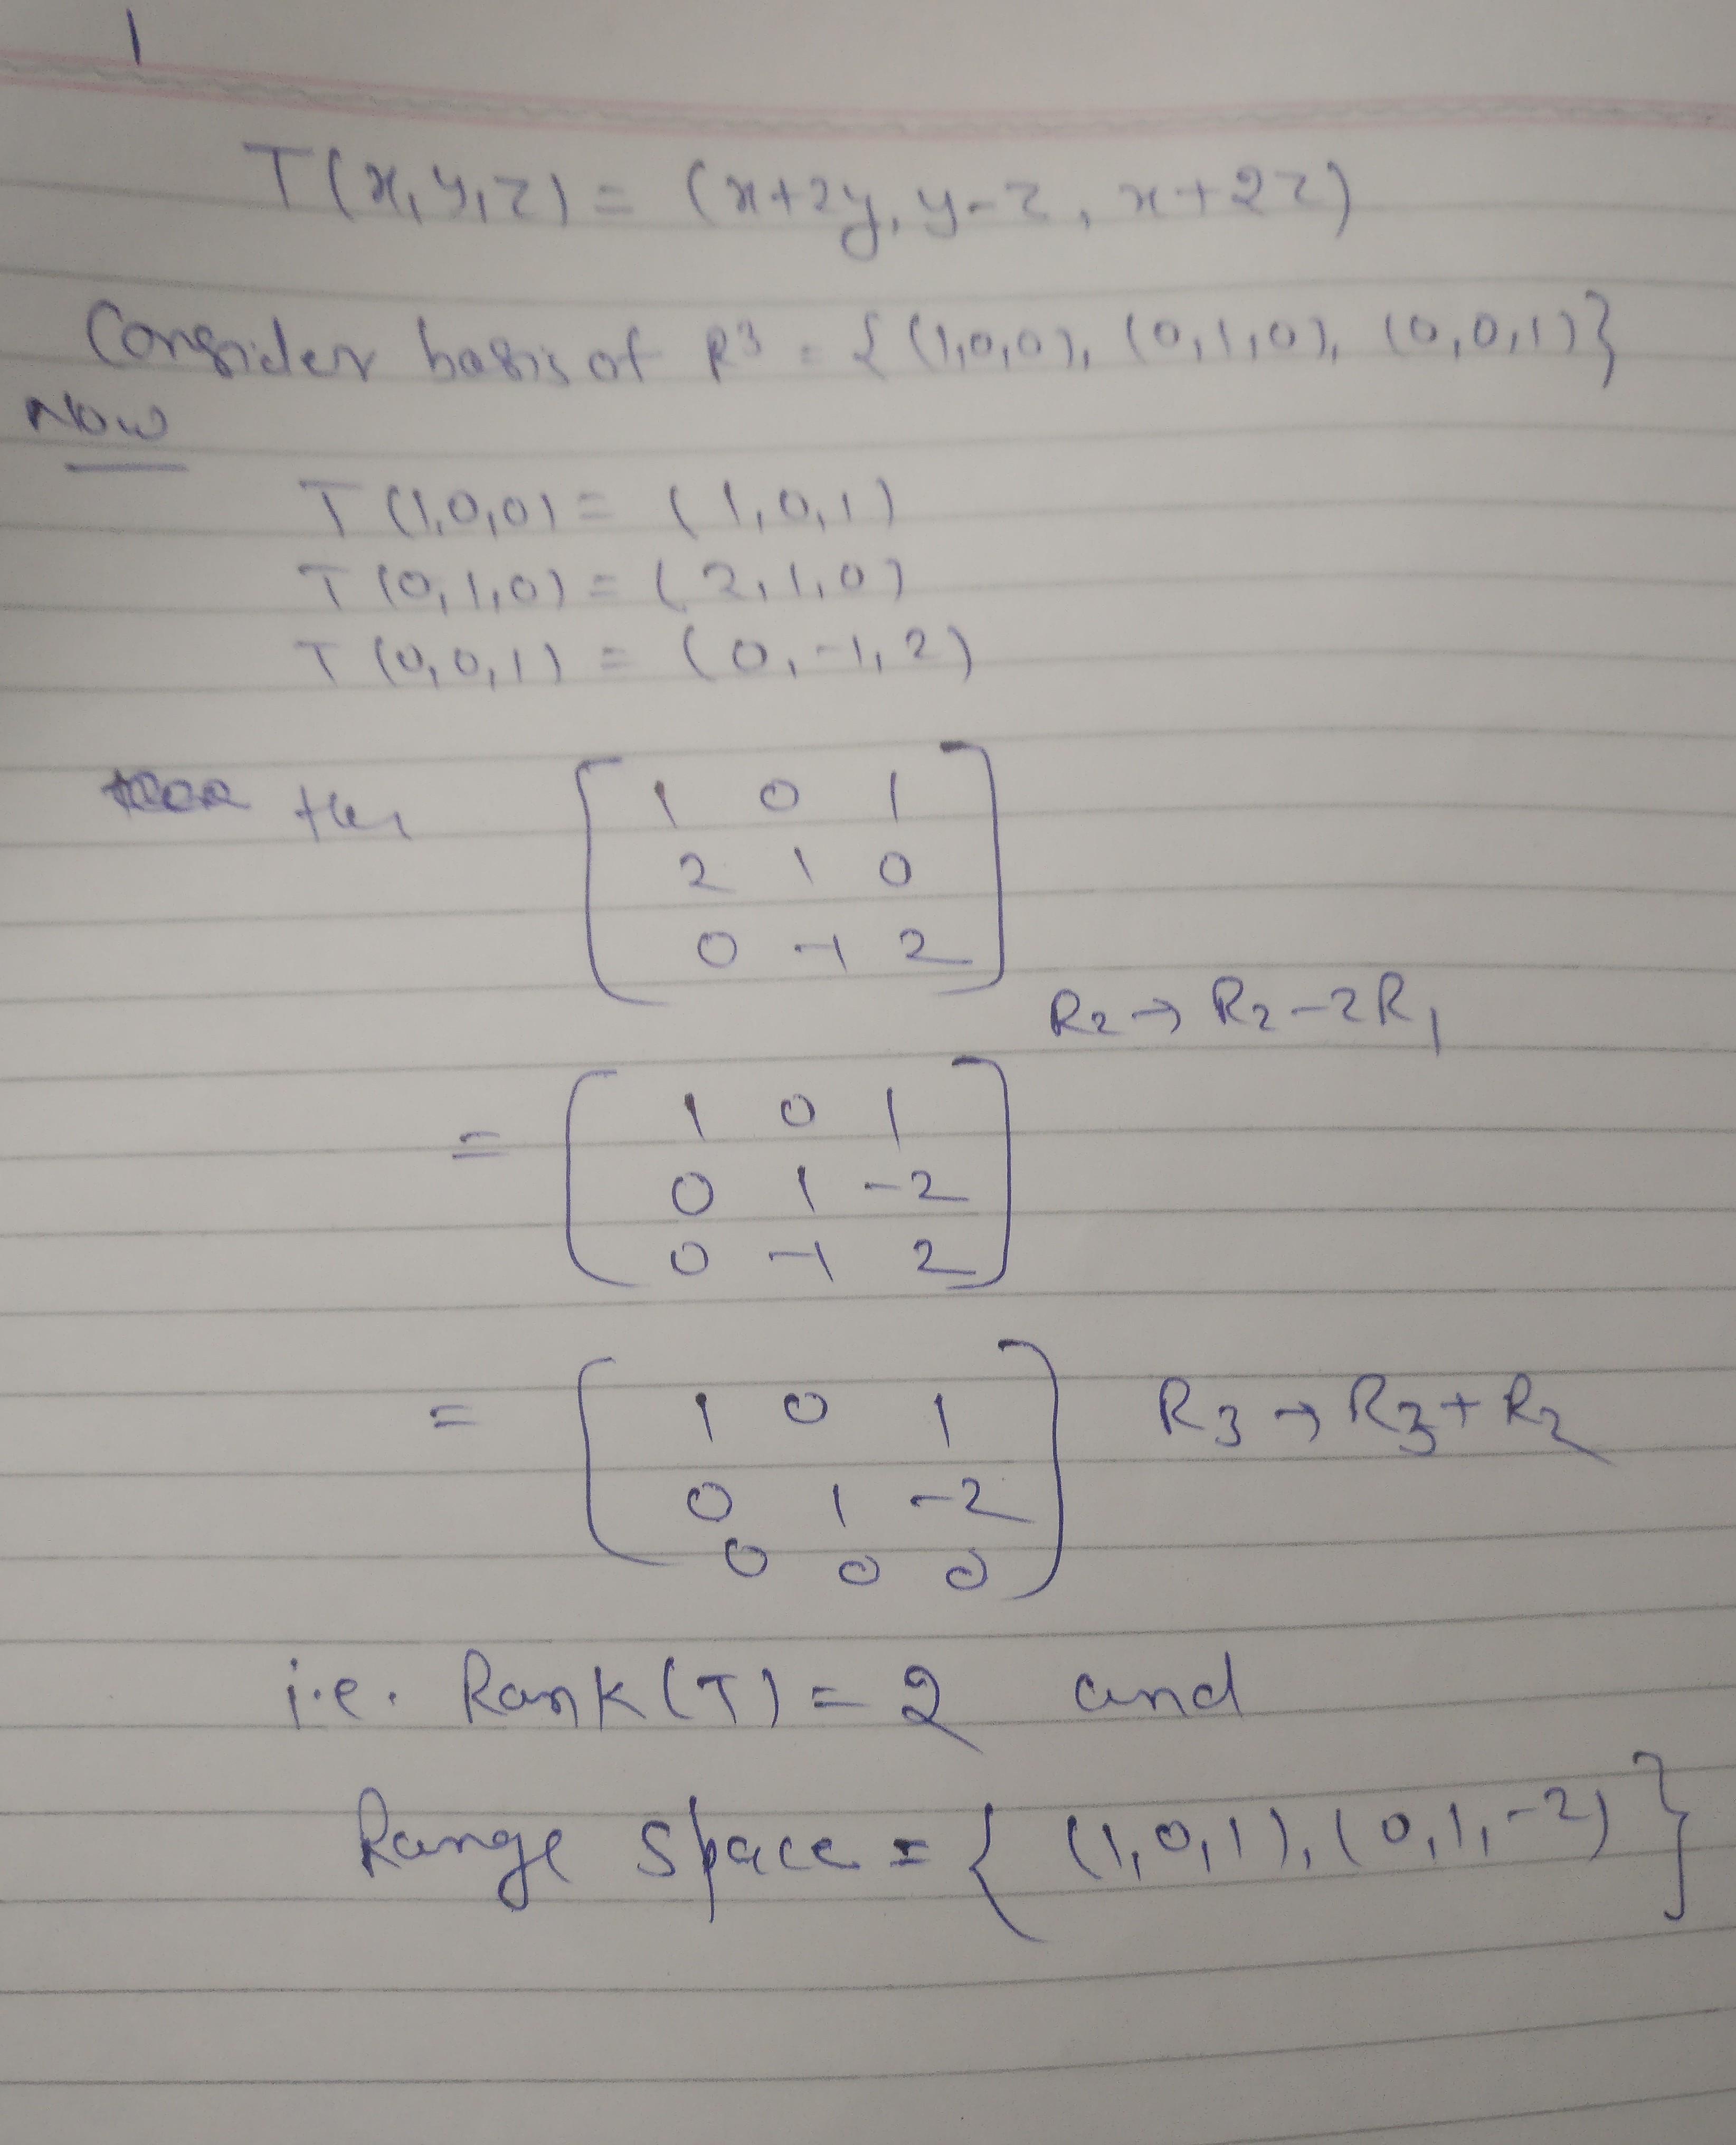 1
T(x,y,z) = (x+2y, y-z, x+2z)
Consider basis of R³ = {(1,0,0), (0,1,0), (0,0,1)}
Now
T(1,0,0) = (1,0,1)
T(0,1,0) = (2,1,0)
T(0,0,1) = (0,-1,2)
1 0 1
2 1 0
0 -1 2
R2 → R2-2R1
= 1 0 1
0 1 -2
0 -1 2
= 1 0 1 R3 → R3+R2
0 1 -2
0 0 0
i.e. Rank(T) = 2 and
Range Space = {(1,0,1), (0,1,-2)}